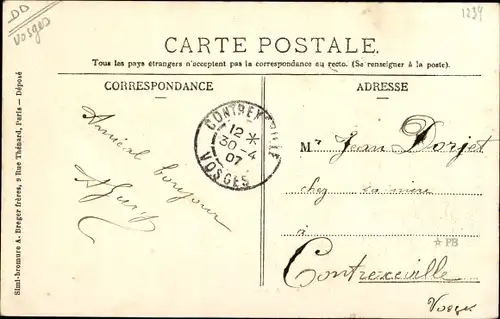 DD
Vosges
1234
CARTE POSTALE.
Tous les pays étrangers n'acceptent pas la correspondance au recto. (Se renseigner à la poste).
CORRESPONDANCE
ADRESSE
Simi-bromure A. Breger frères, 9 Rue Thénard, Paris — Déposé
CONTREXEVILLE
12 *
30 - 4
07
VOSGES
Amical bonjour
Mr Jean Dorjet
chez sa mère
à
☆ PB
Contrexeville
Vosges